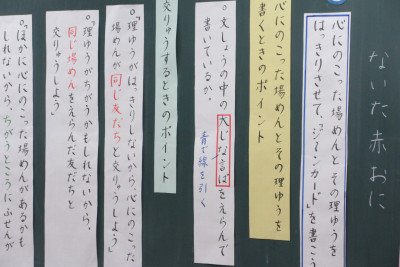 ないた赤おに
心にのこった場めんとその理ゆうを
はっきりさせて、「ジーンカード」を書こう
心にのこった場めんとその理ゆうを
書くときのポイント
○文しょうの中の大じな言ばをえらんで
書いているか。
青で線を引く
交りゅうするときのポイント
○「理ゆうがはっきりしないから、心にのこった
場めんが同じ友だちと交りゅうしよう」
○「理ゆうがちがうかもしれないから、
同じ場めんをえらんだ友だちと
交りゅうしよう」
○「ほかに心にのこった場めんがあるかも
しれないから、ちがうところにふせんが